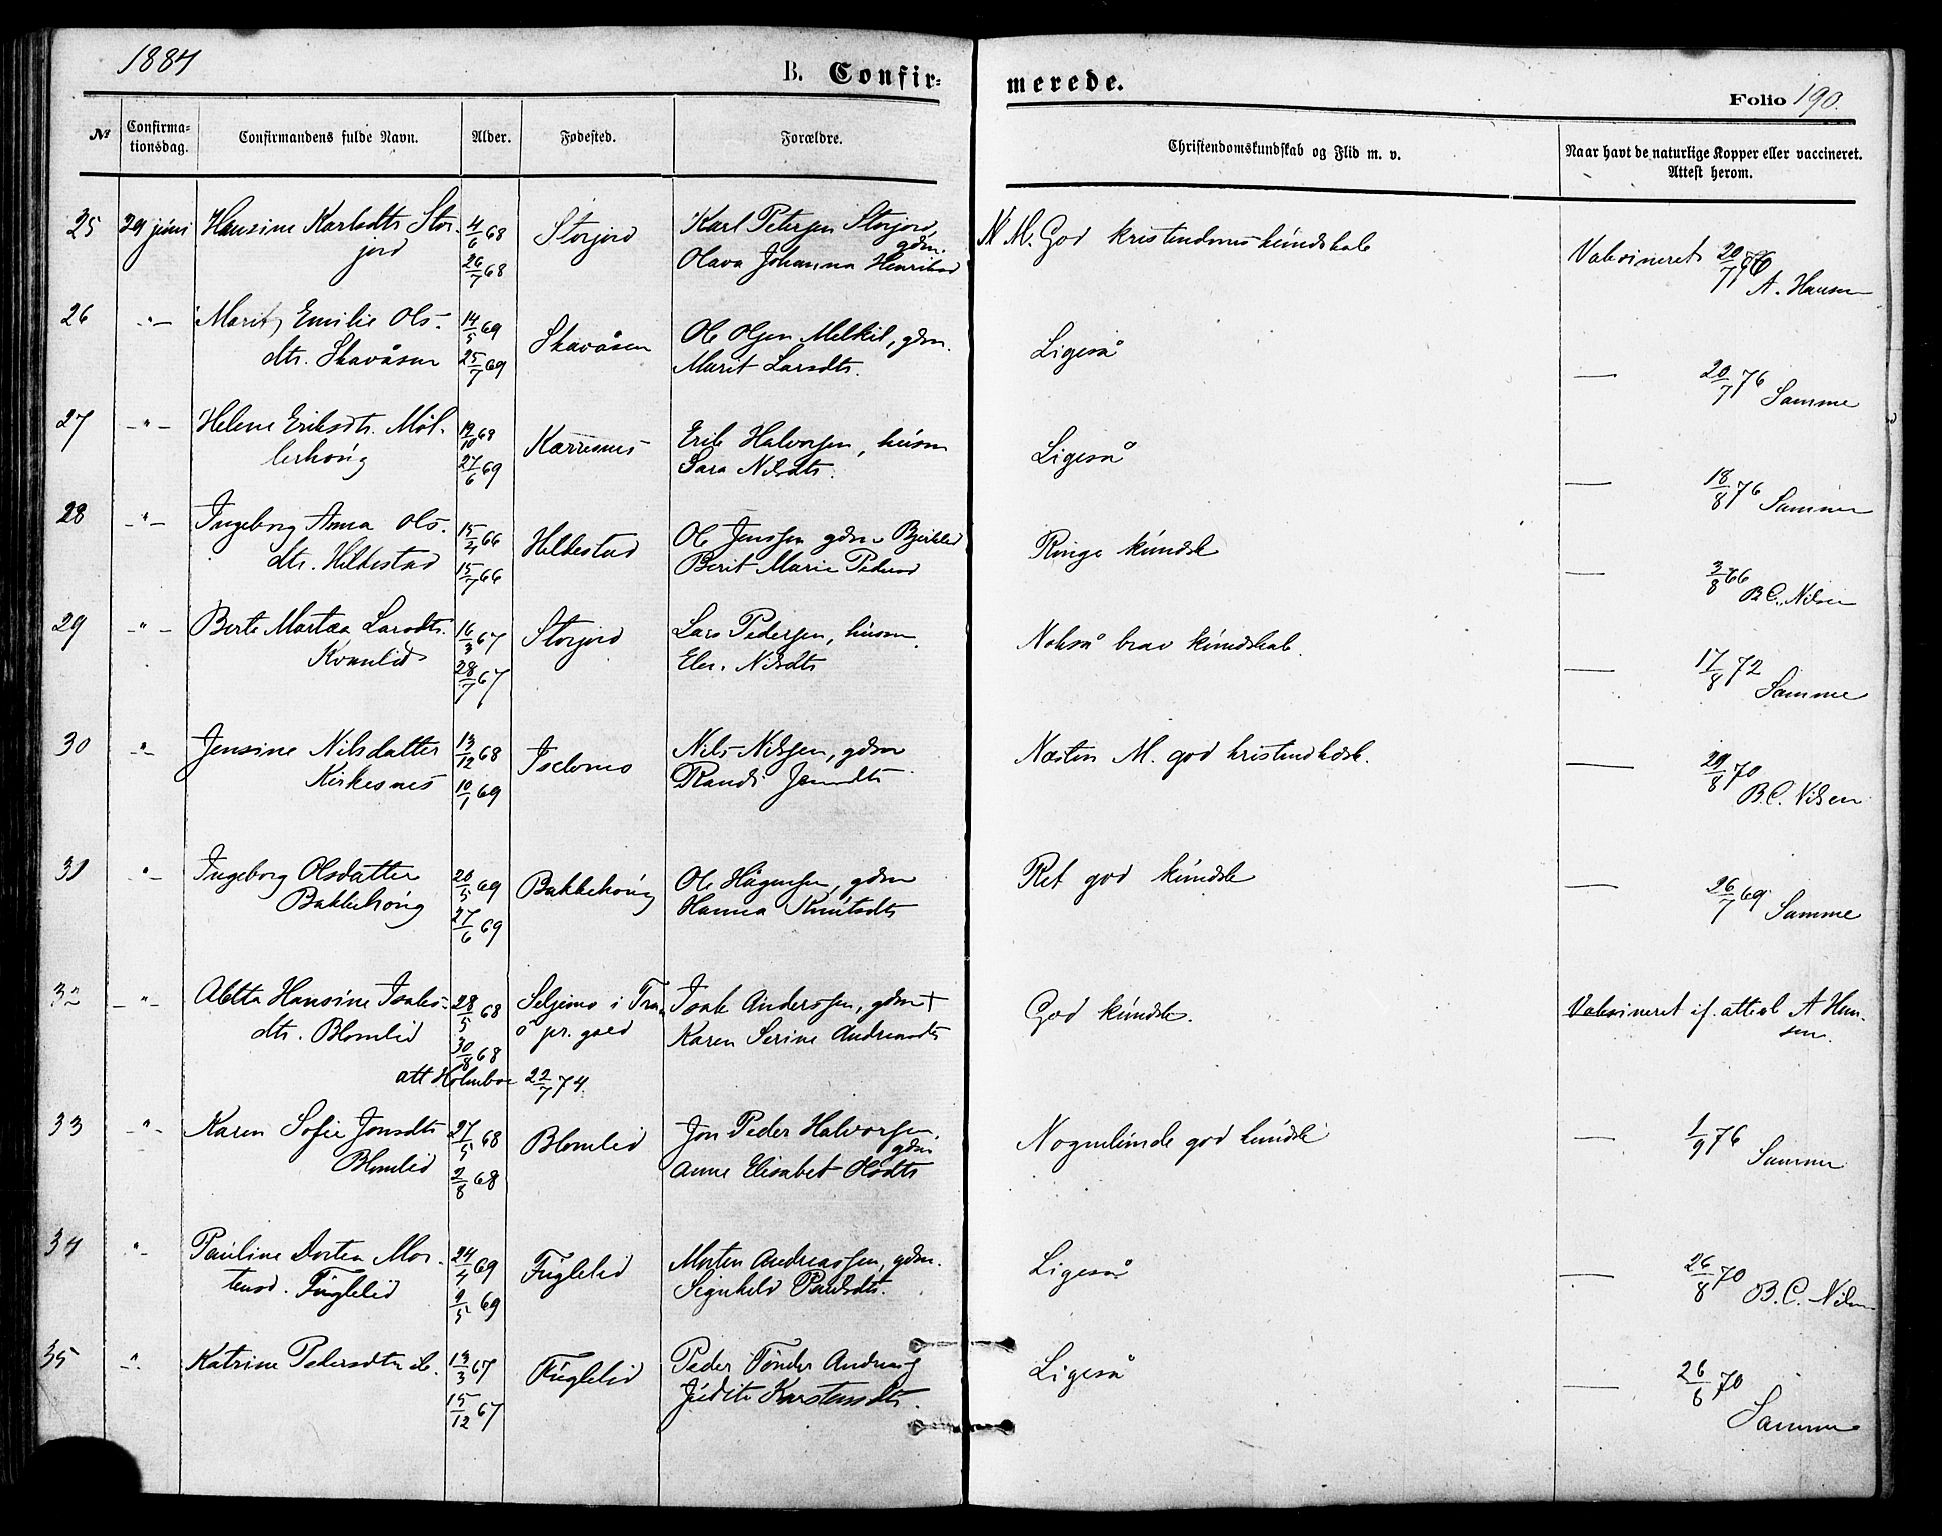 1884
B. Confir=
merede.
Folio 190.
№
Confirma-
tionsdag.
Confirmandens fulde Navn.
Alder.
Fødested.
Forældre.
Christendomskundskab og Flid m. v.
Naar havt de naturlige Kopper eller vaccineret.
Attest herom.
25 29 juni Hansine Karlsdtr Stor-
jord
4/6 68
26/7 68
Storjord
Karl Petersen Storjord,
gdm.
Olava Johanna Henriksd
M. God kristendomskundskab
Vaksineret 20/7 76
A. Hansen
26 -"- Marit Emilie Ols-
dtr. Skavåsen
14/5 69
25/7 69
Skavåsen
Ole Olsen Melkil, gdm.
Marit Larsdtr.
Ligeså
— 20/7 76 Samme
27 -"- Helene Eriksdtr. Möl-
lerhoug
19/10 68
27/6 69
Karresnes
Erik Halvorsen, husm
Sara Nilsdtr.
Ligeså
— 18/8 76 Samme
28 -"- Ingeborg Anna Ols-
dtr. Hildestad
15/4 66
15/7 66
Hildestad
Ole Jenssen gdm Bjerklid
Berit Marie Pedersd
Ringe kundsk
— 3/8 66 B.C. Nilsen
29 -"- Berte Martea Larsdtr.
Kvanlid
16/3 67
28/7 67
Storjord
Lars Pedersen, husm.
Elen. Nilsdtr
Nokså brav kundskab.
— 17/8 72
Samme
30 -"- Jensine Nilsdatter
Kirkesnes
13/12 68
10/1 69
Iselvmo
Nils Nilsen, gdm
Randi Jensdtr
Næsten M. god kristendkdsk.
— 29/8 70
B.C. Nilsen
31 -"- Ingeborg Olsdatter
Bakkehoug
20/5 69
27/6 69
Bakkehoug
Ole Hågensen, gdm
Hanna Knutsdtr
Ret god kundsk
— 26/7 69 Samme
32 -"- Aletta Hansine Isaks-
dtr. Blomlid
28/5 68
30/8 68
Seljemo i Tran-
ö pr. gjeld
Isak Anderssen, gdm +
Karen Serine Andreasdtr
att Holmboe 22/7 74.
God kundsk.
Vaksineret if. attest A Han-
sen.
33 -"- Karen Sofie Jonsdtr
Blomlid
27/5 68
2/8 68
Blomlid
Jon Peder Halvorsen,
gdm
Anne Elisabet Olsdtr
Nogenlunde god kundsk
— 1/9 76
Samme
34 "- Pauline Dortea Mor-
tensd. Fuglelid
24/4 69
9/5 69
Fuglelid
Morten Andreassen, gdm.
Signhild Paulsdtr.
Ligeså
— 26/8 70 B.C. Nilsen
35 -"- Katrine Pedersdtr ib.
13/3 67
15/12 67
Fuglelid
Peder Tönder Andreas
Judite Karstensdtr.
Ligeså
— 26/8 70
Samme